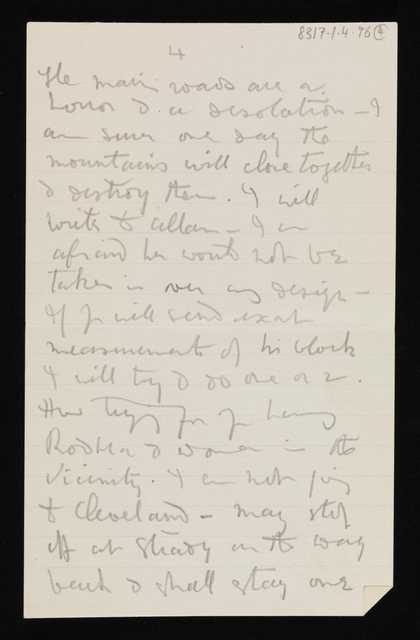 8317.1.4.76
4
The main roads are a
horror & a desolation – I
am sure one day the
mountains will close together
& destroy them. I will
write to Allan – I am
afraid he wont not be
taken in over any design –
If you will send exact
measurements of his block
I will try & do one or 2.
How trying for you having
& women in the
vicinity. I am not going
to Cleveland – may stop
off at on the way
back & shall stay one